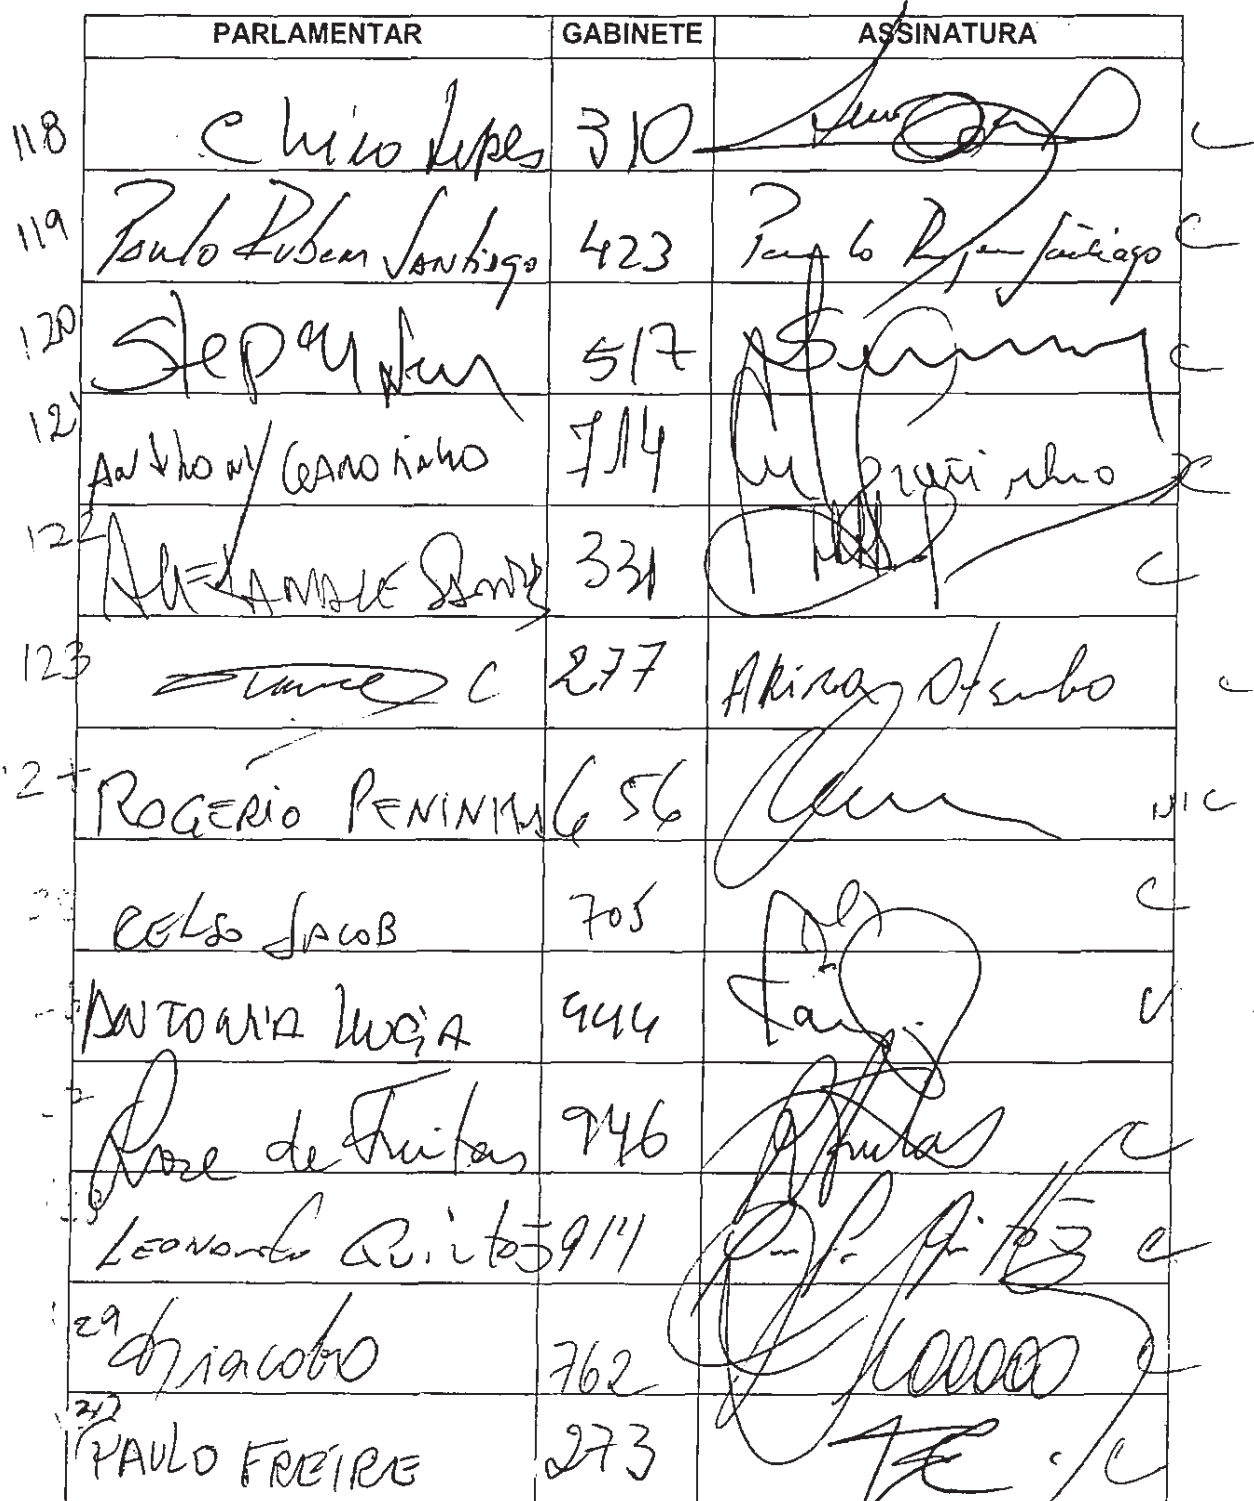 PARLAMENTAR GABINETE ASSINATURA
118 Chico Lopes 310 C
119 Paulo Rubem Santiago 423 Paulo Rubem Santiago C
120 Stepan 517 C
121 Anthony Garotinho 714 Garotinho C
122 ALEXANDRE SANTOS 331 C
123 C 277 Akira Otsubo C
ROGÉRIO PENINHA 656 N/C
CELSO JACOB 705 C
ANTONIA LUCIA 444 C
Rose de Freitas 946 Freitas C
LEONARDO QUINTÃO 914 C
29 Giacobo 762 C
PAULO FREIRE 273 C